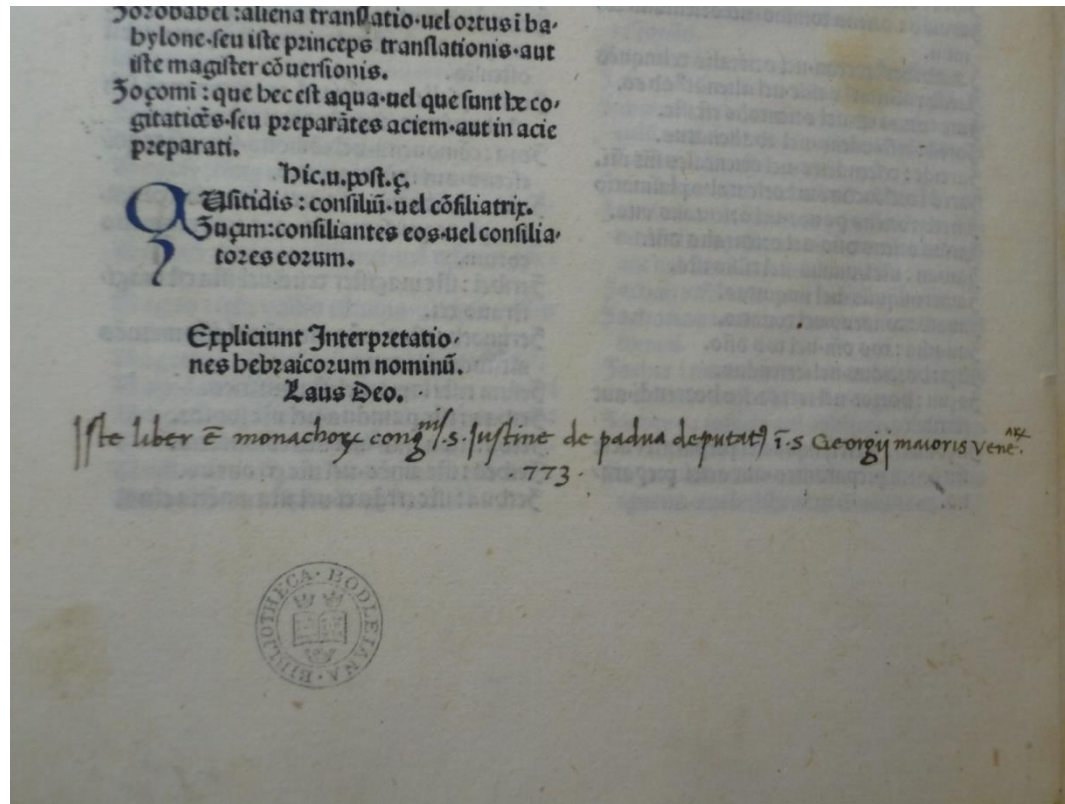 Zorobabel : aliena translatio·uel ortus i ba-
bylone·seu iste princeps translationis·aut
iste magister cõuersionis.
Zoçomi : que hec est aqua·uel que sunt he co-
gitatiões·seu preparãtes aciem·aut in acie
preparati.
Hic.u.post.ç.
ZUsitidis : consiliũ·uel cõsiliatrix.
Zuçim:consiliantes eos·uel consilia-
tores eorum.
Expliciunt Interpretatio-
nes hebraicorum nominũ.
Laus Deo.
Iste liber ē monachoꝝ congnis .s. Iustine de padua deputatꝰ ī .s Georgii maioris veneaꝝ.
.773.
BIBLIOTHECA·BODLEIANA·